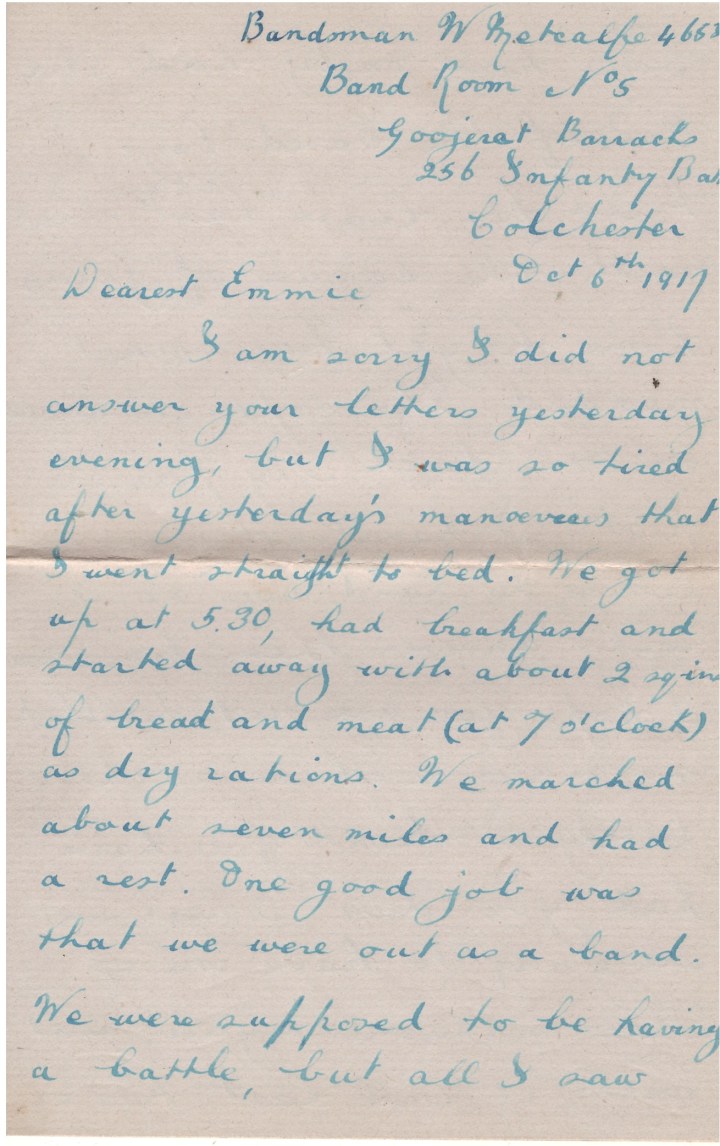 Bandsman W Metcalfe 4663
Band Room No 5
Goojerat Barracks
256 Infantry Bat
Colchester
Oct 6th 1917
Dearest Emmie
I am sorry I did not
answer your letters yesterday
evening, but I was so tired
after yesterday's that
I went straight to bed. We got
up at 5.30, had breakfast and
started away with about 2 sq in
of bread and meat (at 7 o'clock)
as dry rations. We marched
about seven miles and had
a rest. One good job was
that we were out as a band.
We were supposed to be having
a battle, but all I saw